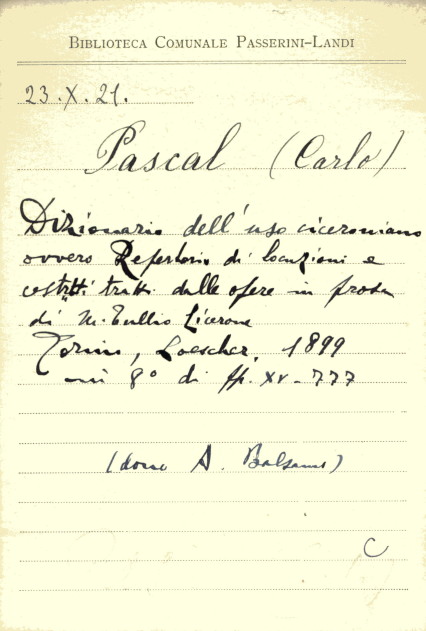 BIBLIOTECA COMUNALE PASSERINI-LANDI
23.X.21.
Pascal (Carlo)
Dizionario dell'uso ciceroniano
ovvero Repertorio di locuzioni e
costrutti tratti dalle opere in prosa
di M. Tullio Cicerone
Torino, Loescher, 1899
in 8º di pp. XV-777
(dono A. Balsamo)
C